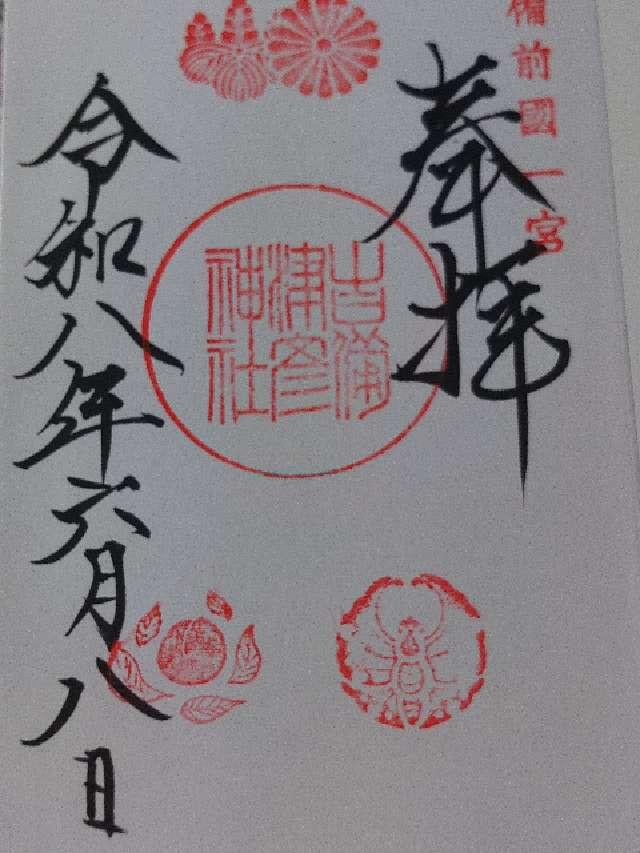 備前國一宮
奉拝
吉備
津彦
神社
令和八年六月八日